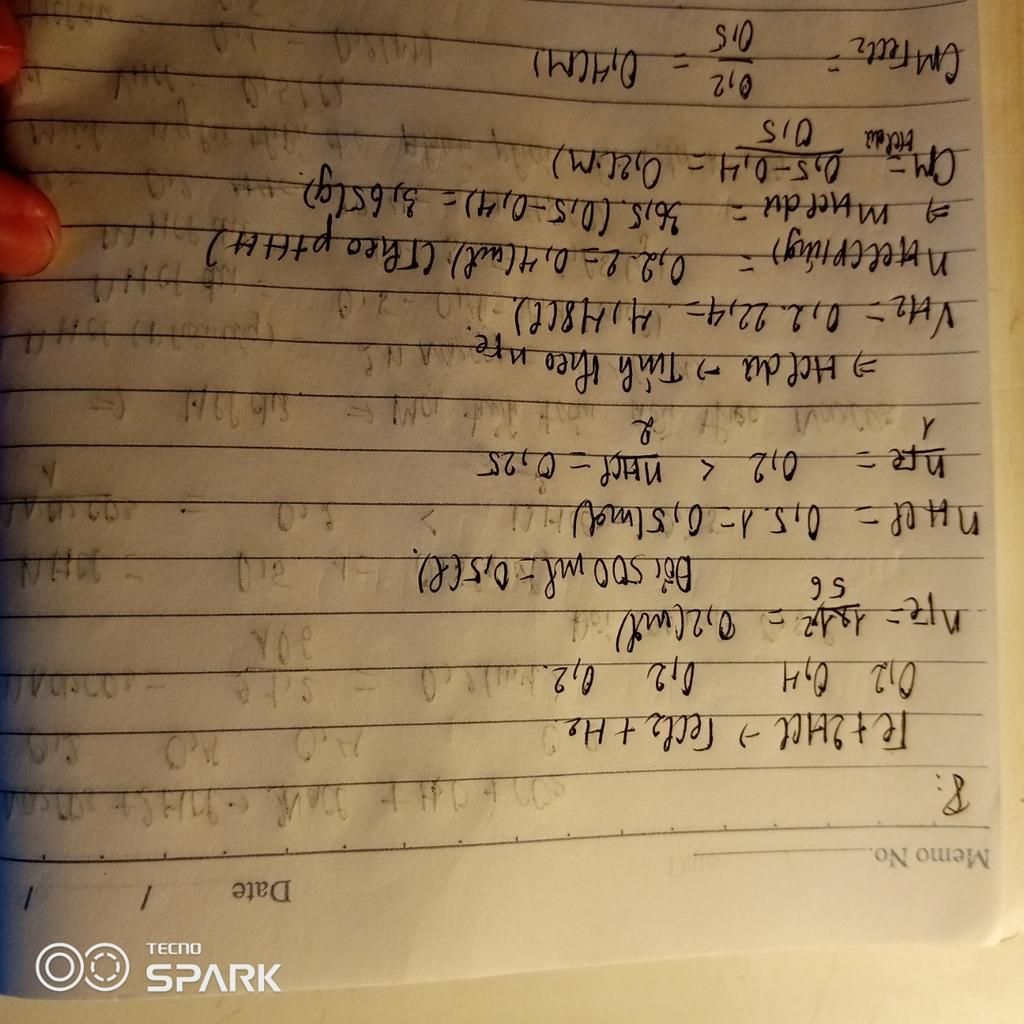 Memo No.
Date / /
8:
Fe + 2HCl → FeCl2 + H2
0,2 0,4 0,2 0,2
nFe = 11,2/56 = 0,2(mol)
Đổi 500 ml = 0,5(l)
nHCl = 0,5.1 = 0,5(mol)
nFe/1 = 0,2 < nHCl/2 = 0,25
⇒ HCl dư → Tính theo nFe.
VH2 = 0,2.22,4 = 4,48(l)
nHCl(pứng) = 0,2.2 = 0,4(mol) (Theo ptHH)
⇒ mHCl dư = 36,5.(0,5-0,4) = 3,65(g)
CM HCl dư = 0,5-0,4/0,5 = 0,2(M)
CM FeCl2 = 0,2/0,5 = 0,4(M)
TECNO
SPARK